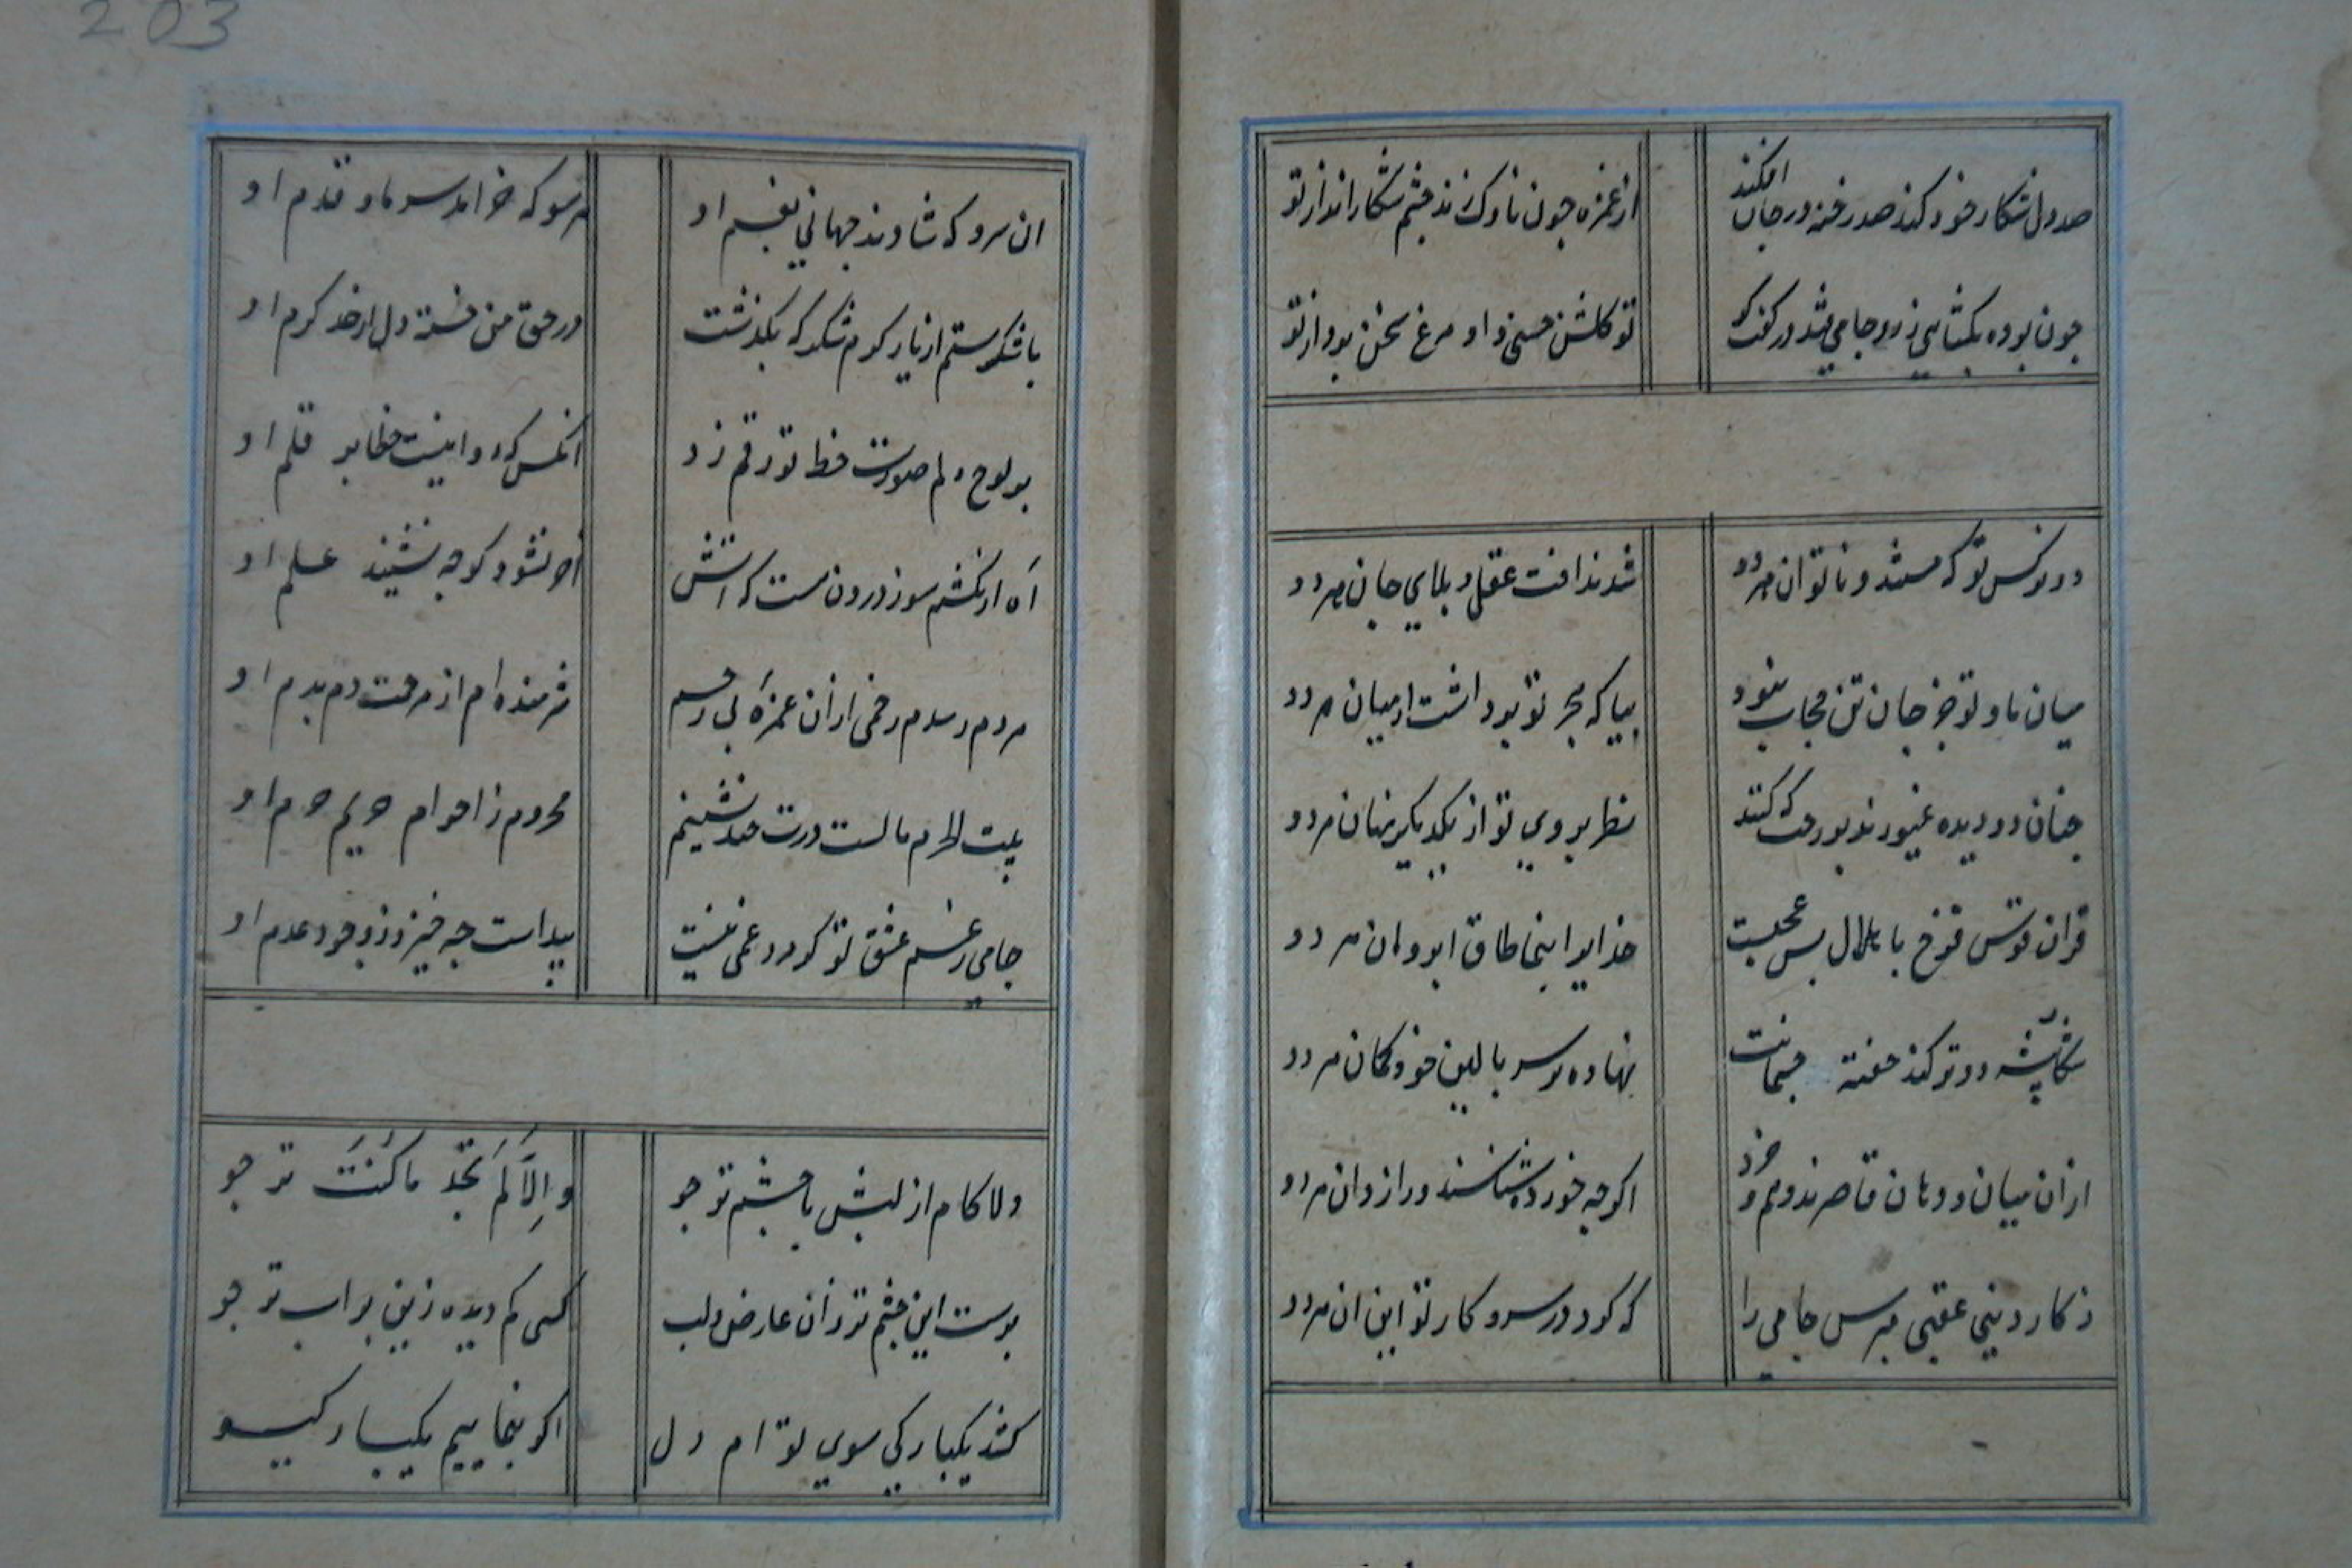 صد دل شکار خود کند صد رخنه در جان افکند
از غمزه چون ناوک زند چشم شکار انداز تو
تو کلشن حسنی و او مرغ سخن پرداز تو
دو نرکس تو که مستند و ناتوان هر دو
شدند افت عقل و بلای جان هر دو
میان ما و تو جز جان و تن حجاب نبود
بیا که هجر تو برداشت از میان هر دو
چنان دو دیده غیورند بر رخت که کنند
نظر بروی تو از یکدیکر نهان هر دو
قران قوس قزح با هلال بس عجبست
خدایرا بنما طاق ابروان هر دو
شکار پیشه دو ترکند خفته چشمانت
نهاده بر سر بالین خود کمان هر دو
از ان میان و دهان قاصرند وهم و خرد
اکر چه خورده شناسند و رازدان هر دو
ز کار دینی و عقبی مپرس جامی را
که کرد در سر و کار تو این ان هر دو
203
ان سرو که شادند جهانی بغم او
هر سو که خرامد سر ما و قدم او
با شکر ستم از یار کرم شکر که بکذشت
در حق من خسته دل از حد کرم او
بر لوح دلم صورت خط تو رقم زد
انکس که روا نیست خطا بر قلم او
آه ار نکشم سوز درون است که اتش
اخر نشود کرچه نشیند علم او
مردم رسدم زخمی از ان غمزه بی رحم
شرمنده ام از مرحمت دم بدم او
بیت الحرم ماست درت چند نشینم
محروم ز احرام حریم حرم او
جامی ز غم عشق تو کر مرد غمی نیست
پیداست چه خیزد ز وجود و عدم او
دلا کام از لبش با چشم تر جو
و الا لم تجد ما کنت ترجو
پرست این چشم تر زان عارض و لب
کسی کم دیده زین پر اب تر جو
کشد یکبارکی سوی تو ام دل
اکر بنماییم یکبار کیسو